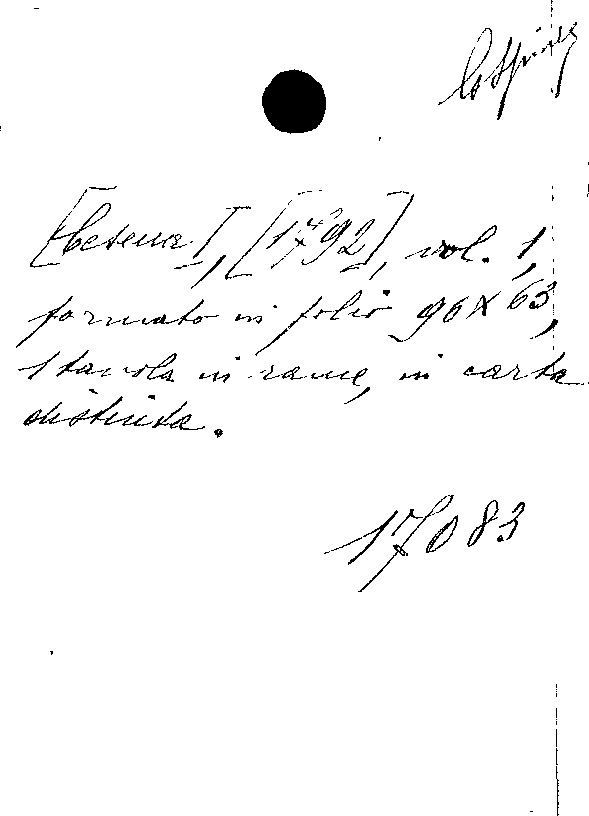 [Cesena], [1792], vol. 1,
formato in folio 90 X 63,
1 tavola in rame, in carta
distinta.
17083